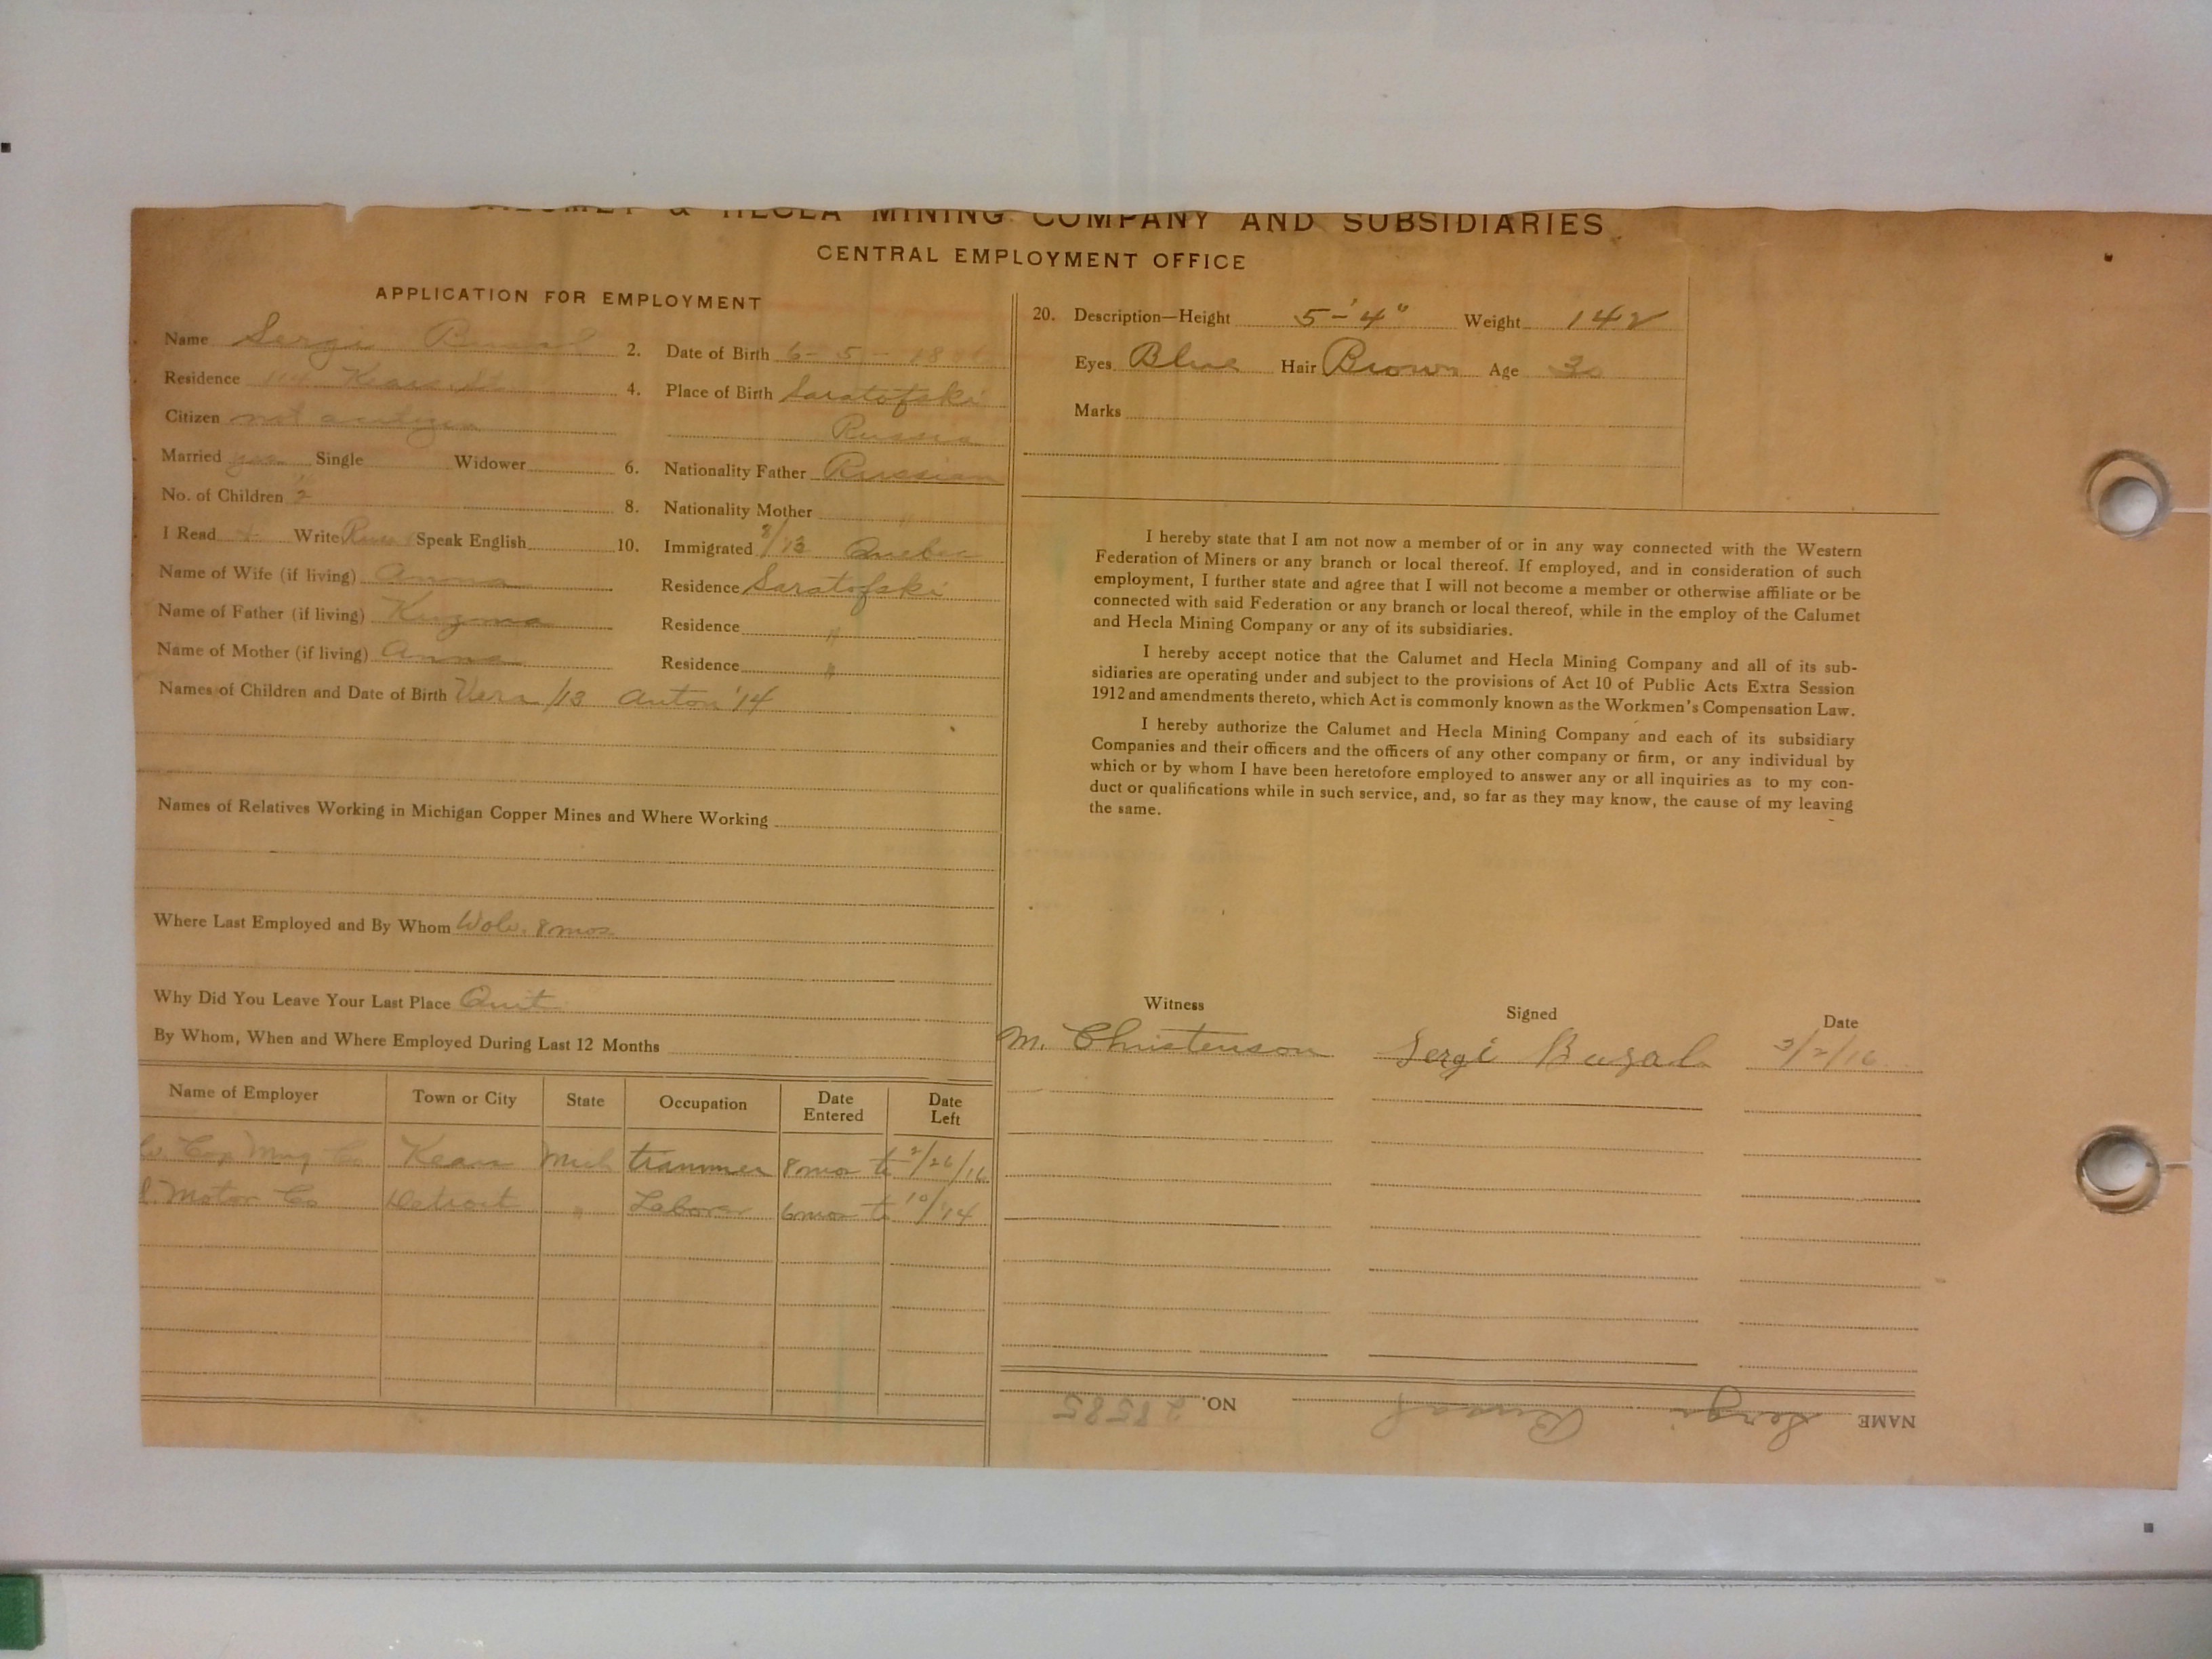 & HECLA MINING COMPANY AND SUBSIDIARIES
CENTRAL EMPLOYMENT OFFICE
APPLICATION FOR EMPLOYMENT
Name Sergi
Residence Kears.
Citizen not citizen
Married yes Single Widower
No. of Children 2
I Read Write Speak English
Name of Wife (if living) Anna
Name of Father (if living) Kuzma
Name of Mother (if living) Anna
2. Date of Birth 6-5-18
4. Place of Birth Saratofski
Russia
6. Nationality Father Russian
8. Nationality Mother
10. Immigrated 8/13 Quebec
Residence Saratofski
Residence "
Residence "
Names of Children and Date of Birth Vera /13 Anton '14
Names of Relatives Working in Michigan Copper Mines and Where Working
Where Last Employed and By Whom Wolv. 8 mos
Why Did You Leave Your Last Place Quit
By Whom, When and Where Employed During Last 12 Months
Name of Employer Town or City State Occupation Date Entered Date Left
Cop Mng Co Kears Mich trammer 8 mos to 2/26/16
Motor Co Detroit " Laborer 6 mos to 10/14
20. Description—Height 5-'4" Weight 142
Eyes Blue Hair Brown Age 30
Marks
I hereby state that I am not now a member of or in any way connected with the Western
Federation of Miners or any branch or local thereof. If employed, and in consideration of such
employment, I further state and agree that I will not become a member or otherwise affiliate or be
connected with said Federation or any branch or local thereof, while in the employ of the Calumet
and Hecla Mining Company or any of its subsidiaries.
I hereby accept notice that the Calumet and Hecla Mining Company and all of its sub-
sidiaries are operating under and subject to the provisions of Act 10 of Public Acts Extra Session
1912 and amendments thereto, which Act is commonly known as the Workmen's Compensation Law.
I hereby authorize the Calumet and Hecla Mining Company and each of its subsidiary
Companies and their officers and the officers of any other company or firm, or any individual by
which or by whom I have been heretofore employed to answer any or all inquiries as to my con-
duct or qualifications while in such service, and, so far as they may know, the cause of my leaving
the same.
Witness Signed Date
M. Christenson Sergi Buzal 3/2/16
NAME Sergi NO. 28585